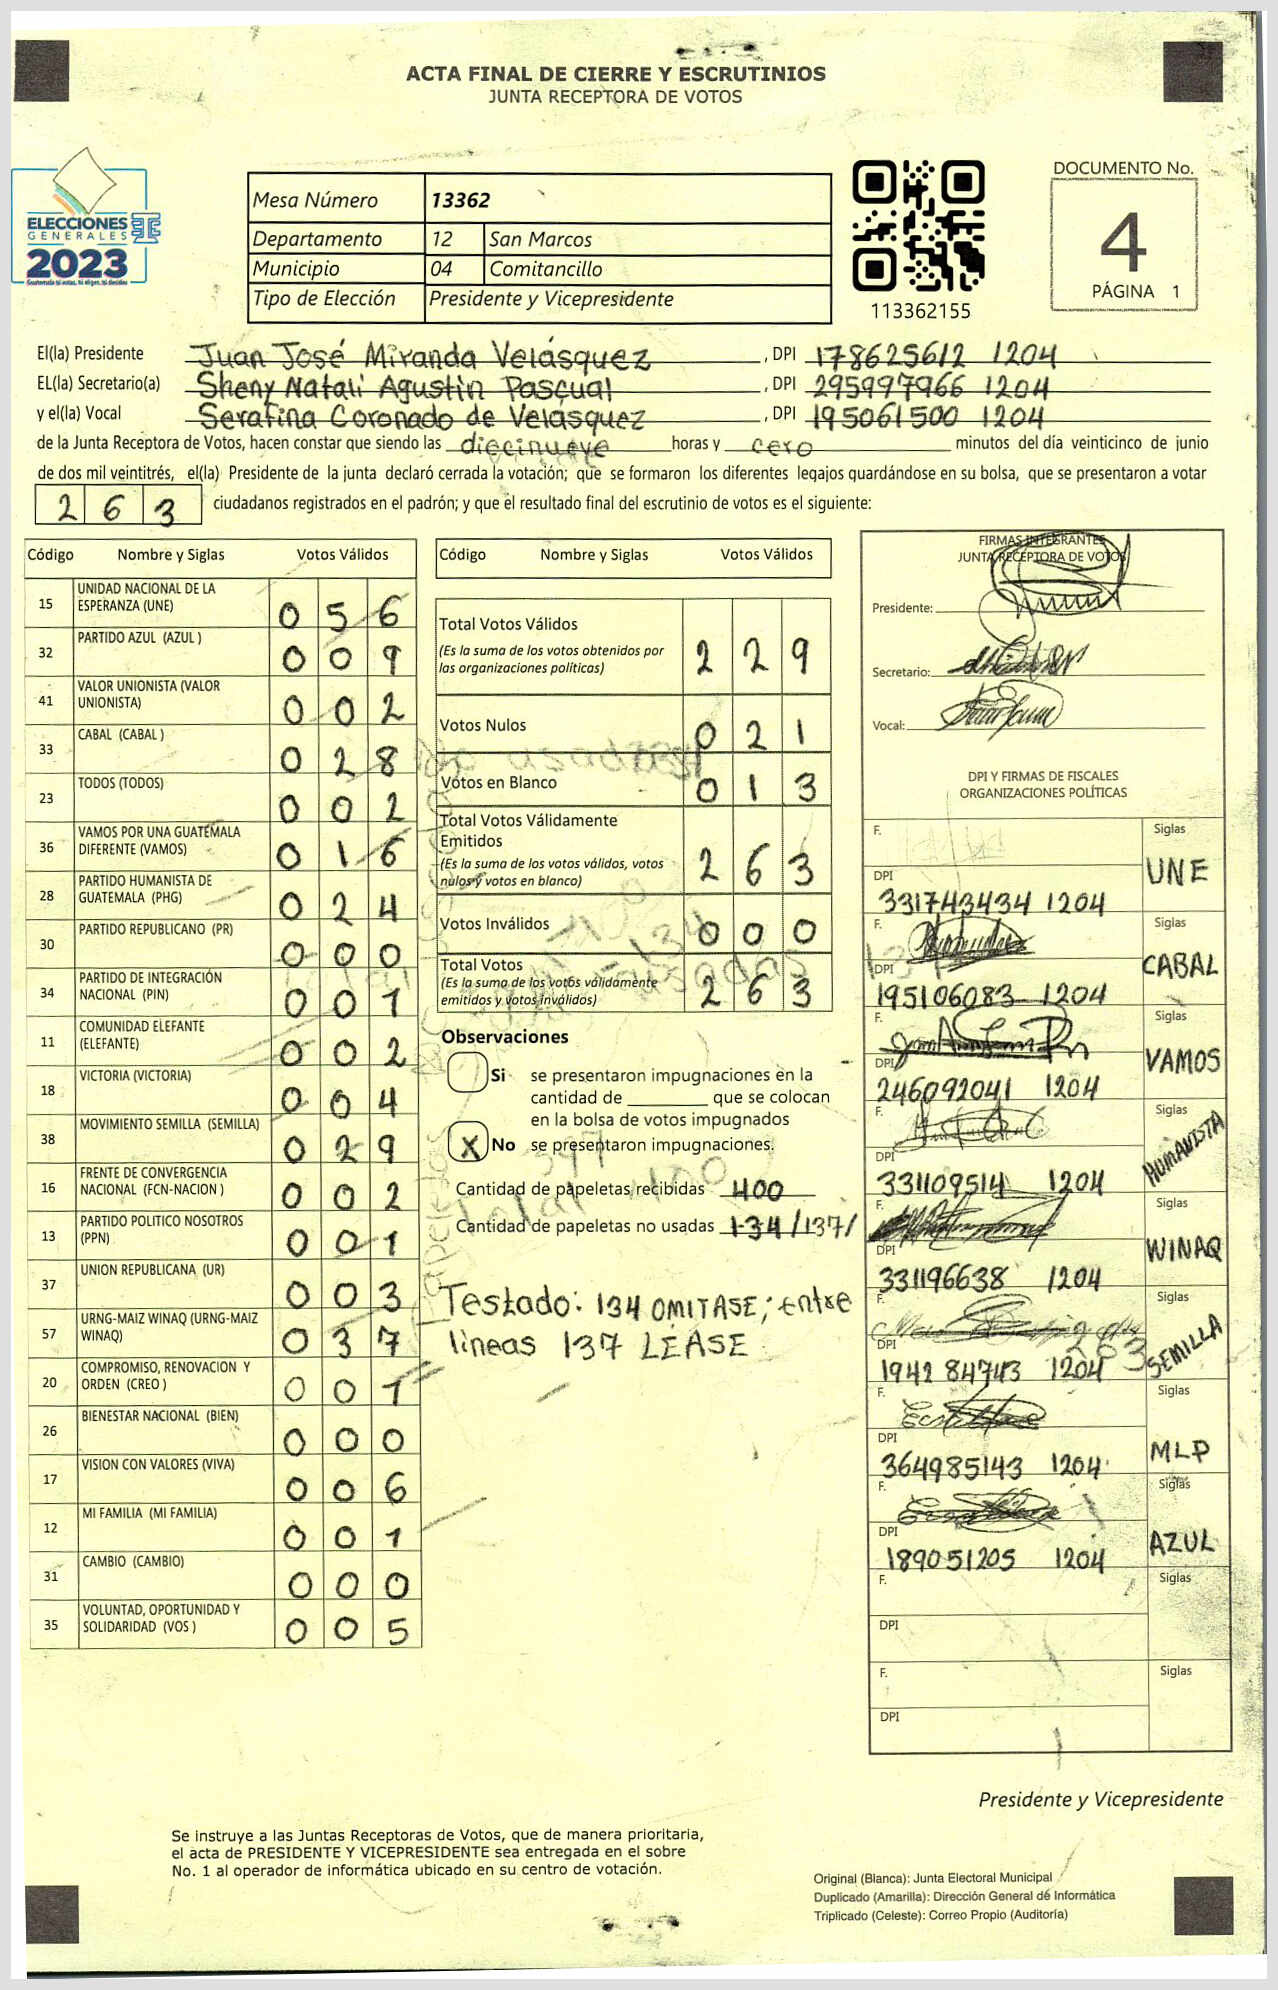 ACTA FINAL DE CIERRE Y ESCRUTINIOS
JUNTA RECEPTORA DE VOTOS
ELECCIONES
GENERALES
2023
Mesa Número 13362
Departamento 12 San Marcos
Municipio 04 Comitancillo
Tipo de Elección Presidente y Vicepresidente
113362155
DOCUMENTO No.
4
PÁGINA 1
El(la) Presidente Juan José Miranda Velásquez, DPI 178625612 1204
EL(la) Secretario(a) Sheny Natalí Agustín Pascual, DPI 295997966 1204
y el(la) Vocal Serafina Coronado de Velásquez, DPI 195061500 1204
de la Junta Receptora de Votos, hacen constar que siendo las diecinueve horas y cero minutos del día veinticinco de junio
de dos mil veintitrés, el(la) Presidente de la junta declaró cerrada la votación; que se formaron los diferentes legajos guardándose en su bolsa, que se presentaron a votar
263 ciudadanos registrados en el padrón; y que el resultado final del escrutinio de votos es el siguiente:
Código Nombre y Siglas Votos Válidos
15 UNIDAD NACIONAL DE LA ESPERANZA (UNE) 056
32 PARTIDO AZUL (AZUL ) 009
41 VALOR UNIONISTA (VALOR UNIONISTA) 002
33 CABAL (CABAL ) 028
23 TODOS (TODOS) 002
36 VAMOS POR UNA GUATEMALA DIFERENTE (VAMOS) 016
28 PARTIDO HUMANISTA DE GUATEMALA (PHG) 024
30 PARTIDO REPUBLICANO (PR) 000
34 PARTIDO DE INTEGRACIÓN NACIONAL (PIN) 001
11 COMUNIDAD ELEFANTE (ELEFANTE) 002
18 VICTORIA (VICTORIA) 004
38 MOVIMIENTO SEMILLA (SEMILLA) 029
16 FRENTE DE CONVERGENCIA NACIONAL (FCN-NACION ) 002
13 PARTIDO POLITICO NOSOTROS (PPN) 001
37 UNION REPUBLICANA (UR) 003
57 URNG-MAIZ WINAQ (URNG-MAIZ WINAQ) 037
20 COMPROMISO, RENOVACION Y ORDEN (CREO ) 001
26 BIENESTAR NACIONAL (BIEN) 000
17 VISION CON VALORES (VIVA) 006
12 MI FAMILIA (MI FAMILIA) 001
31 CAMBIO (CAMBIO) 000
35 VOLUNTAD, OPORTUNIDAD Y SOLIDARIDAD (VOS ) 005
Código Nombre y Siglas Votos Válidos
Total Votos Válidos 229
(Es la suma de los votos obtenidos por
las organizaciones políticas)
Votos Nulos 021
Votos en Blanco 013
Total Votos Válidamente
Emitidos 263
(Es la suma de los votos válidos, votos
nulos y votos en blanco)
Votos Inválidos 000
Total Votos 263
(Es la suma de los votos válidamente
emitidos y votos inválidos)
Observaciones
Si se presentaron impugnaciones en la
cantidad de ________ que se colocan
en la bolsa de votos impugnados
X No se presentaron impugnaciones.
Cantidad de papeletas recibidas 400
Cantidad de papeletas no usadas 134/137/
Testado: 134 OMITASE; entre
líneas 137 LEASE
FIRMAS INTEGRANTES
JUNTA RECEPTORA DE VOTOS
Presidente:
Secretario:
Vocal:
DPI Y FIRMAS DE FISCALES
ORGANIZACIONES POLÍTICAS
F. Siglas
DPI 331743434 1204 UNE
F. Siglas
DPI 195106083 1204 CABAL
F. Siglas
DPI 246092041 1204 VAMOS
F. Siglas
DPI 331109514 1204 HUMANISTA
F. Siglas
DPI 331196638 1204 WINAQ
F. Siglas
DPI 1942 84743 1204 SEMILLA
F. Siglas
DPI 364985143 1204 MLP
F. Siglas
DPI 189051205 1204 AZUL
F. Siglas
DPI
F. Siglas
DPI
Presidente y Vicepresidente
Se instruye a las Juntas Receptoras de Votos, que de manera prioritaria,
el acta de PRESIDENTE Y VICEPRESIDENTE sea entregada en el sobre
No. 1 al operador de informática ubicado en su centro de votación.
Original (Blanca): Junta Electoral Municipal
Duplicado (Amarilla): Dirección General de Informática
Triplicado (Celeste): Correo Propio (Auditoría)